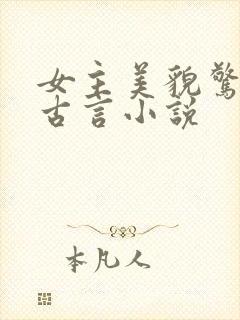 女主美貌驚
古言小説
本凡人